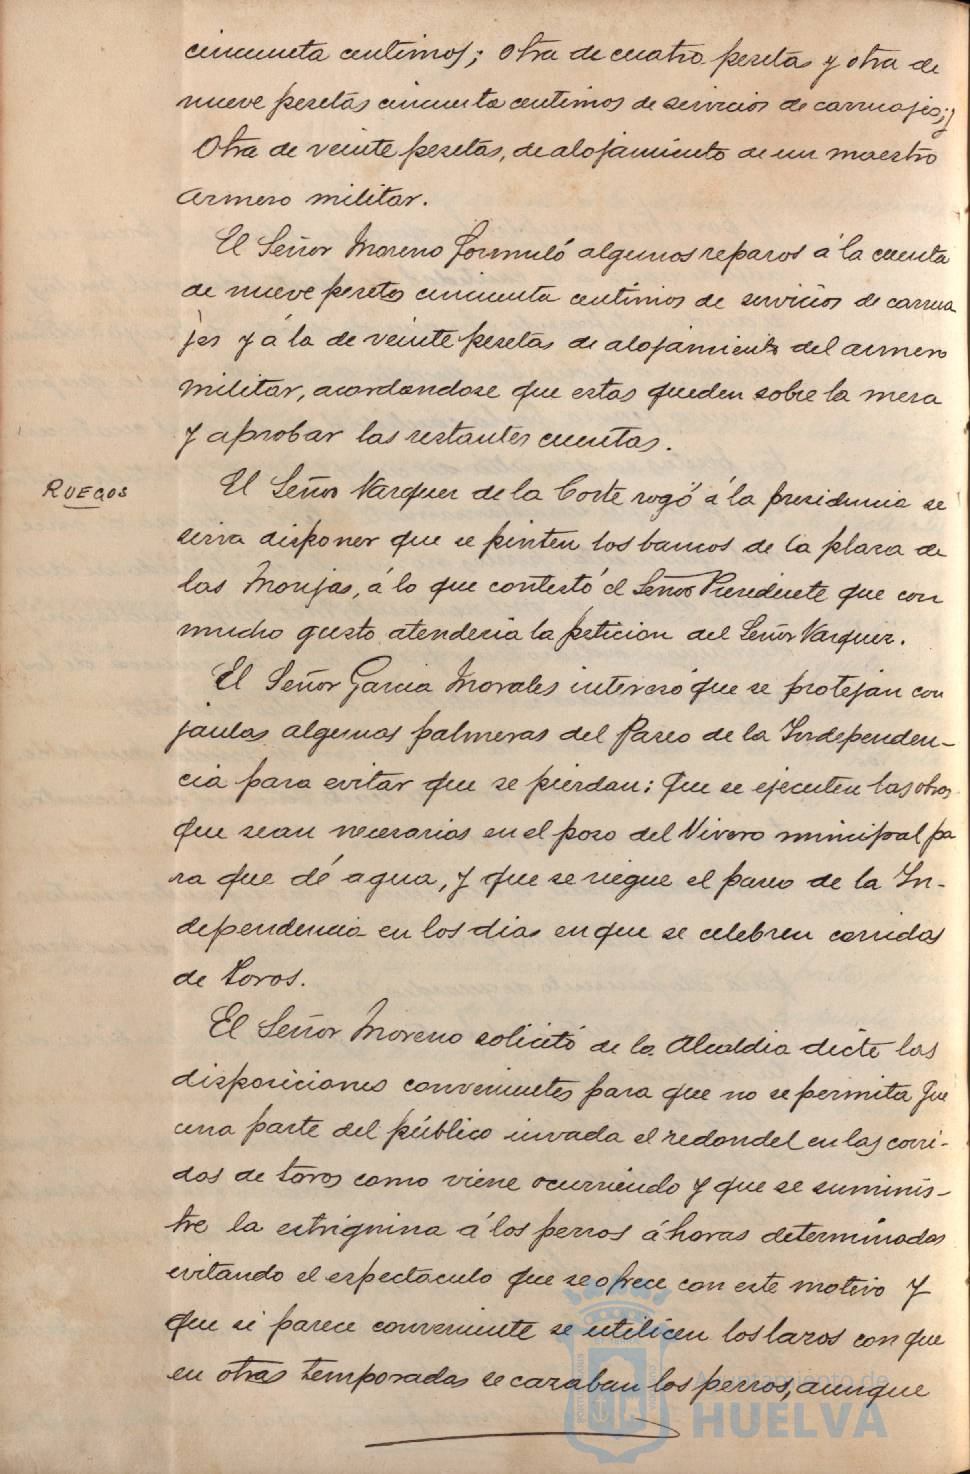 cincuenta centimos; otra de cuatro pesetas y otra de
nueve pesetas cincuenta centimos de servicios de carruajes; y
Otra de veinte pesetas, de alojamiento de un maestro
armero militar.
El Señor Moreno formuló algunos reparos á la cuenta
de nueve pesetas cincuenta centimos de servicios de carrua
jes y á la de veinte pesetas de alojamiento del armero
militar, acordandose que estas queden sobre la mesa
y aprobar las restantes cuentas.
RUEGOS
El Señor Vazquez de la Corte rogó á la presidencia se
sirva disponer que se pinten los bancos de la plaza de
las Monjas, á lo que contestó el Señor Presidente que con
mucho gusto atenderia la peticion del Señor Vazquez.
El Señor Garcia Morales interesó que se protejan con
jaulas algunas palmeras del Paseo de la Independen-
cia para evitar que se pierdan: Que se ejecuten las obras
que sean necesarias en el pozo del Vivero municipal pa
ra que dé agua, y que se riegue el paseo de la In-
dependencia en los dias en que se celebren corridas
de toros.
El Señor Moreno solicitó de la Alcaldia dicte las
disposiciones convenientes para que no se permita que
una parte del público invada el redondel en las corri-
das de toros como viene ocurriendo y que se suminis-
tre la estrignina á los perros á horas determinadas
evitando el espectáculo que se ofrece con este motivo y
que si parece conveniente se utilicen los lazos con que
en otras temporadas se cazaban los perros, aunque
Ayuntamiento de
HUELVA